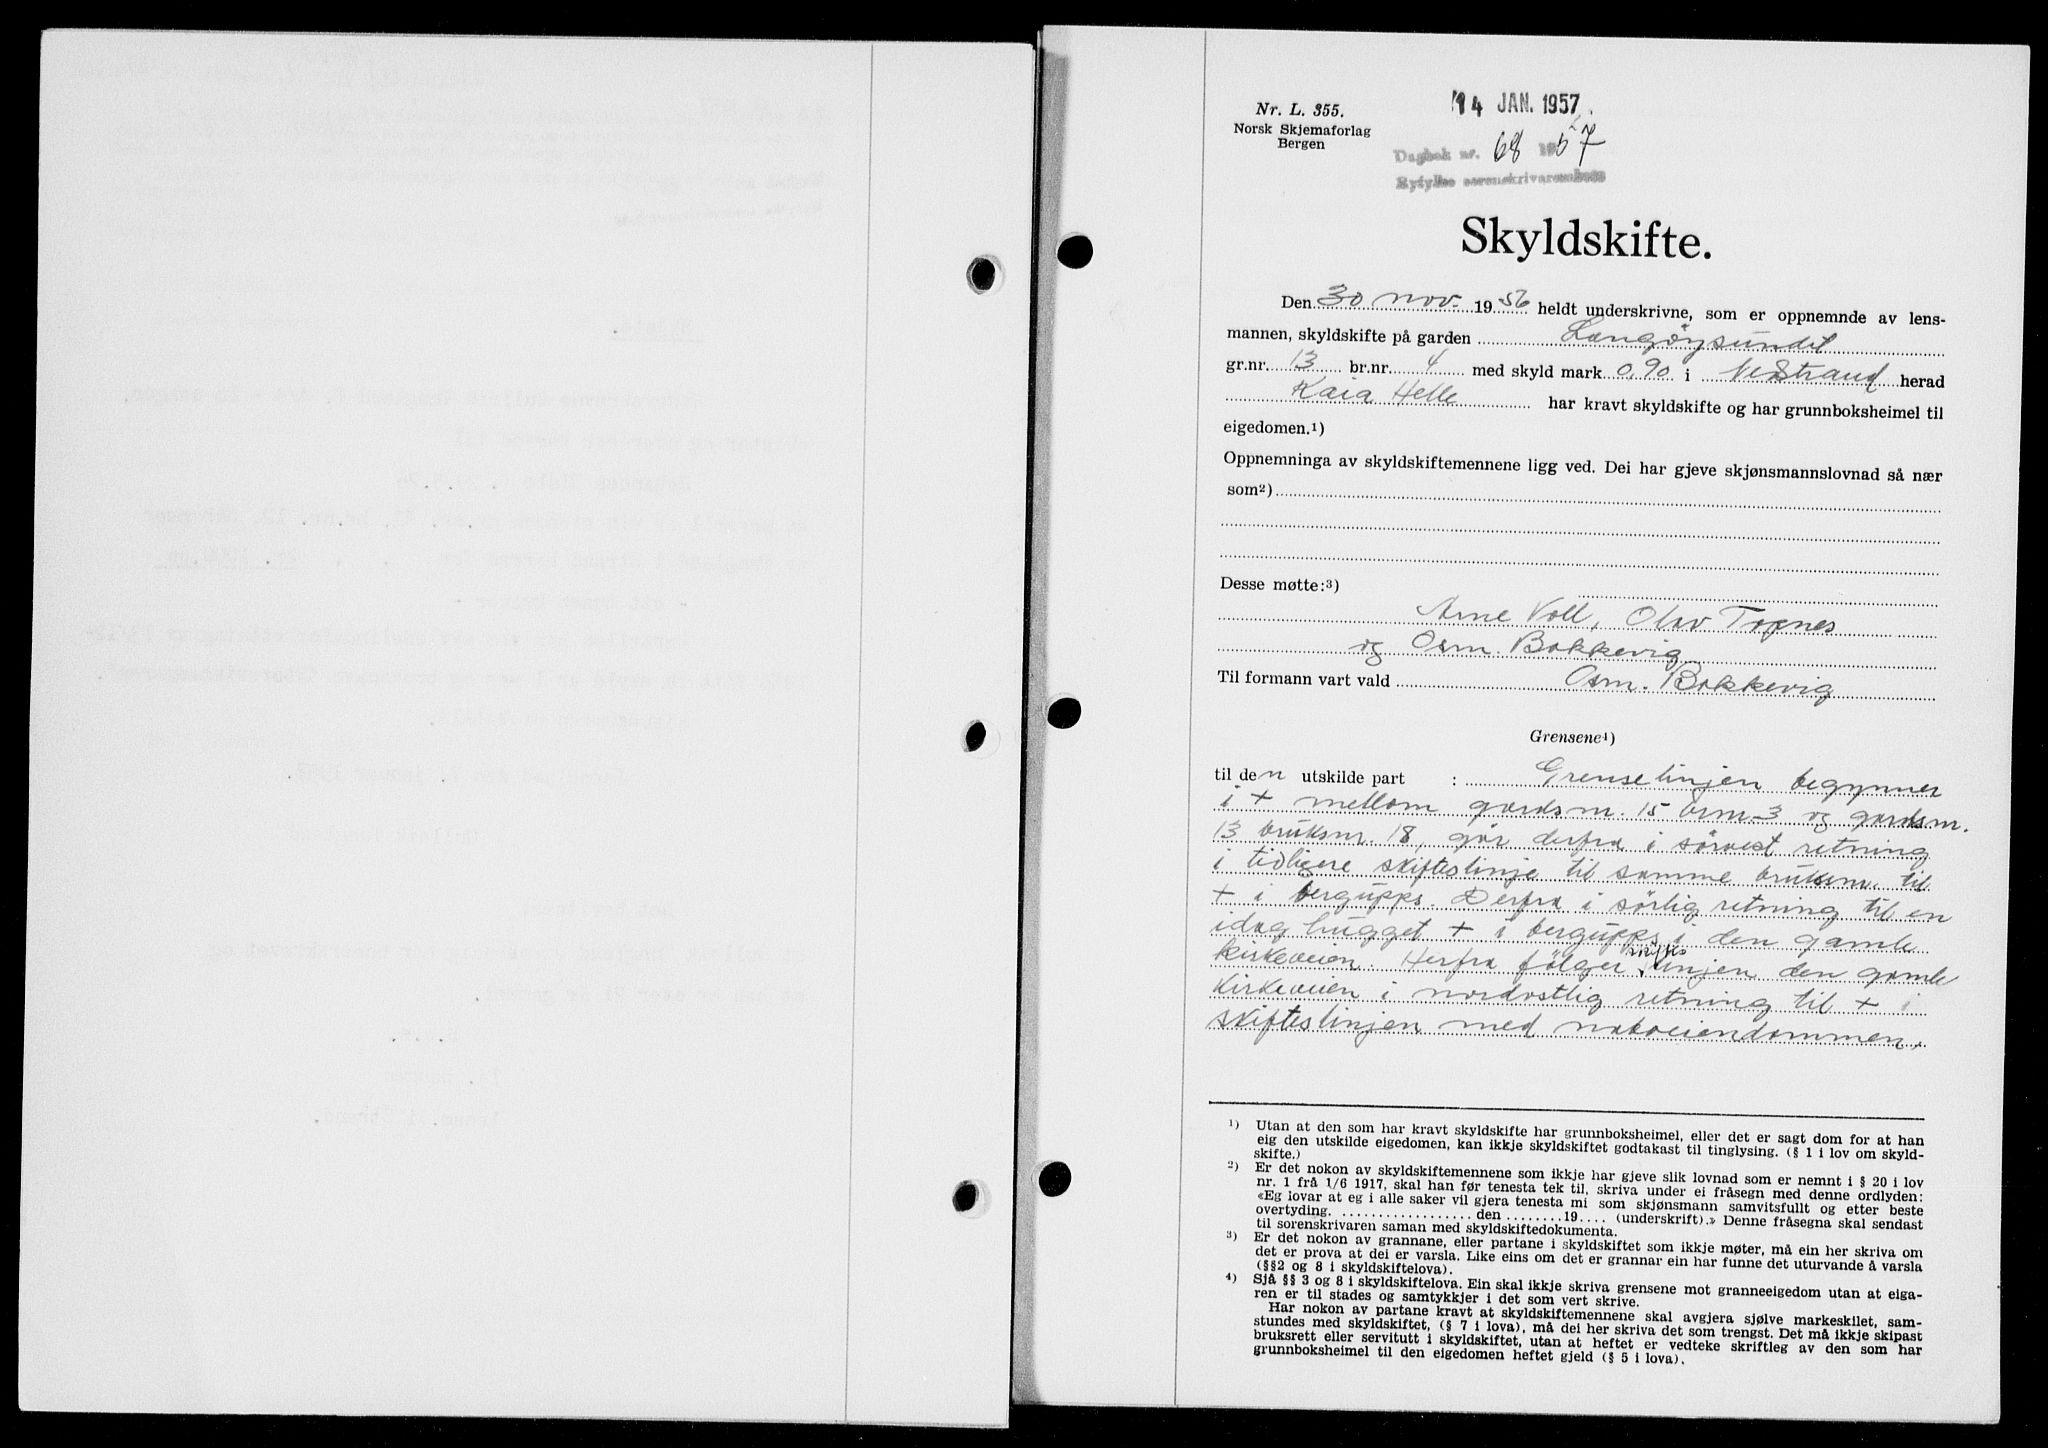 Nr. L. 355.
Norsk Skjemaforlag
Bergen
14 JAN. 1957
Dagbok nr. 68 1957
Ryfylke sorenskrivarembete
Skyldskifte.
Den 30 nov. 1956 heldt underskrivne, som er oppnemnde av lens-
mannen, skyldskifte på garden Langøysundet
gr.nr. 13 br.nr. 4 med skyld mark 0,90 i Nedstrand herad
Kaia Helle har kravt skyldskifte og har grunnboksheimel til
eigedomen.1)
Oppnemninga av skyldskiftemennene ligg ved. Dei har gjeve skjønsmannslovnad så nær
som2)
Desse møtte:3)
Arne Voll, Olav Tognes
og Osm. Bokkevig
Til formann vart vald Osm. Bokkevig
Grensene4)
til den utskilde part : Grenselinjen begynner
i + mellom gardsnr. 15 brnr 3 og gardsnr.
13 bruksnr. 18, går derfra i sørvest retning
i tidligere skifteslinje til samme bruksnr. til
+ i bergupps. Derfra i sørlig retning til en
idag hugget + i bergupps i den gamle
kirkeveien. Herfra følger skiftes linjen den gamle
kirkeveien i nordøstlig retning til + i
skifteslinjen med naboeiendommen.
1) Utan at den som har kravt skyldskifte har grunnboksheimel, eller det er sagt dom for at han
eig den utskilde eigedomen, kan ikkje skyldskiftet godtakast til tinglysing. (§ 1 i lov om skyld-
skifte.)
2) Er det nokon av skyldskiftemennene som ikkje har gjeve slik lovnad som er nemnt i § 20 i lov
nr. 1 frå 1/6 1917, skal han før tenesta tek til, skriva under ei fråsegn med denne ordlyden:
«Eg lovar at eg i alle saker vil gjera tenesta mi som skjønsmann samvitsfullt og etter beste
overtyding. .................. den ........19.... (underskrift).» Denne fråsegna skal sendast
til sorenskrivaren saman med skyldskiftedokumenta.
3) Er det nokon av grannane, eller partane i skyldskiftet som ikkje møter, må ein her skriva om
det er prova at dei er varsla. Like eins om det er grannar ein har funne det uturvande å varsla
(§§2 og 8 i skyldskiftelova).
4) Sjå §§ 3 og 8 i skyldskiftelova. Ein skal ikkje skriva grensene mot granneeigedom utan at eiga-
ren er til stades og samtykkjer i det som vert skrive.
Har nokon av partane kravt at skyldskiftemennene skal avgjera sjølve markeskilet, sam-
stundes med skyldskiftet, (§ 7 i lova), må dei her skriva det som trengst. Det må ikkje skipast
bruksrett eller servitutt i skyldskiftet, utan at heftet er vedteke skriftleg av den som har
grunnboksheimel til den eigedomen heftet gjeld (§ 5 i lova).